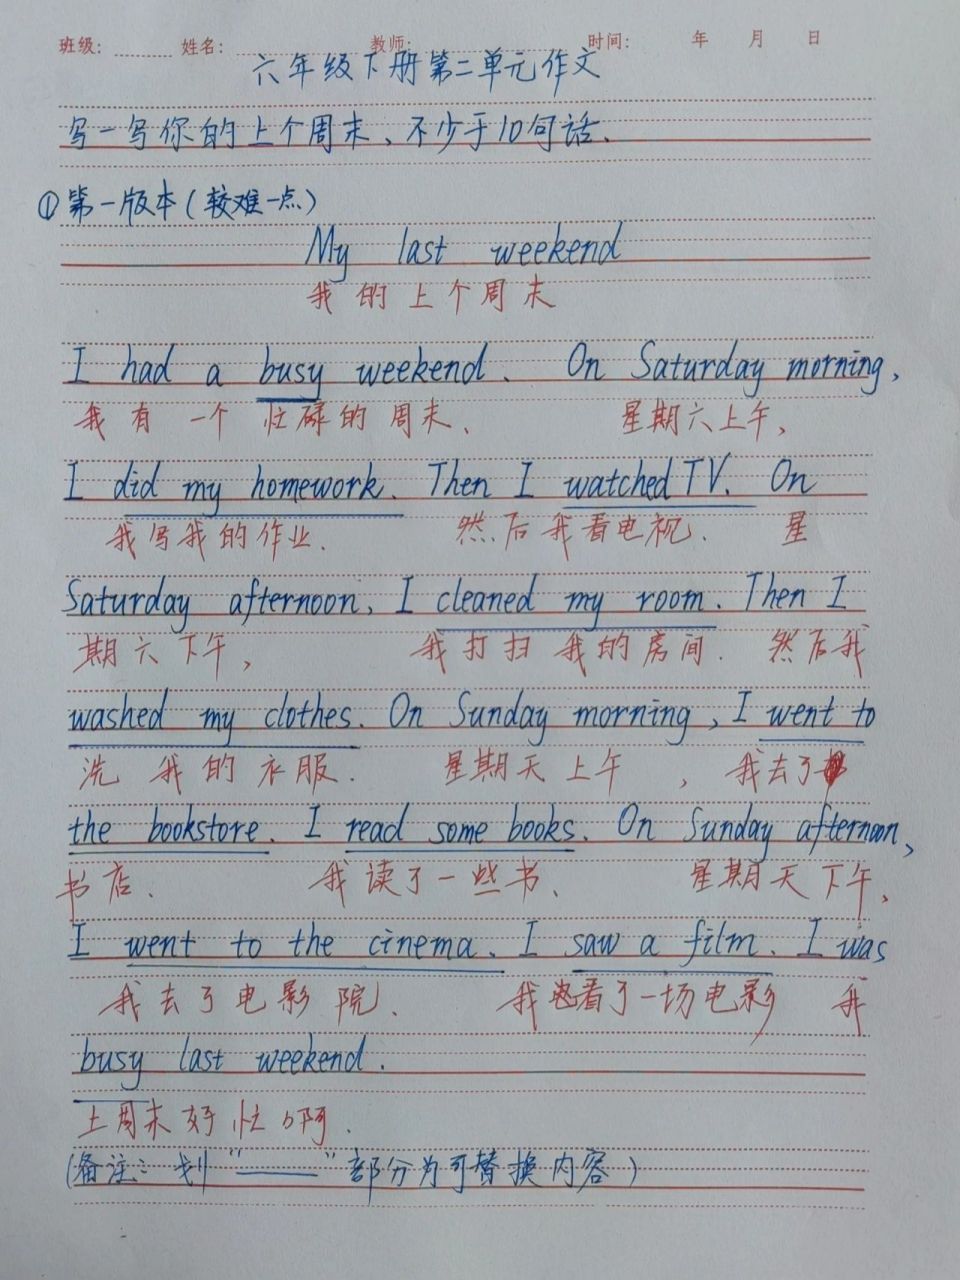 班级: 姓名: 教师: 时间: 年 月 日
六年级下册第二单元作文
写一写你的上个周末、不少于10句话.
①第一版本(较难一点)
My last weekend
我的上个周末
I had a busy weekend. On Saturday morning,
我有一个忙碌的周末、 星期六上午,
I did my homework. Then I watched TV. On
我写我的作业. 然后我看电视. 星
Saturday afternoon, I cleaned my room. Then I
期六下午, 我打扫我的房间. 然后我
washed my clothes. On Sunday morning, I went to
洗我的衣服. 星期天上午, 我去了
the bookstore. I read some books. On Sunday afternoon,
书店. 我读了一些书、 星期天下午,
I went to the cinema. I saw a film. I was
我去了电影院. 我看了一场电影 我
busy last weekend.
上周末好忙啊.
(备注: 划"——"部分为可替换内容)